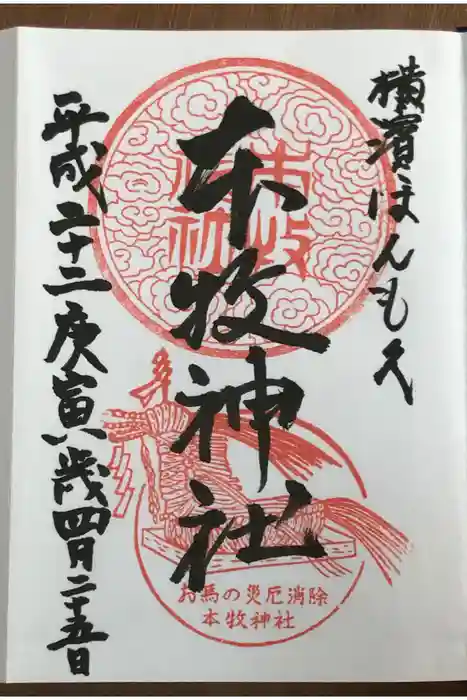 横濱ほんも久
本牧神社
平成二十二庚寅歳四月二十五日
本牧
お馬の災厄消除
本牧神社